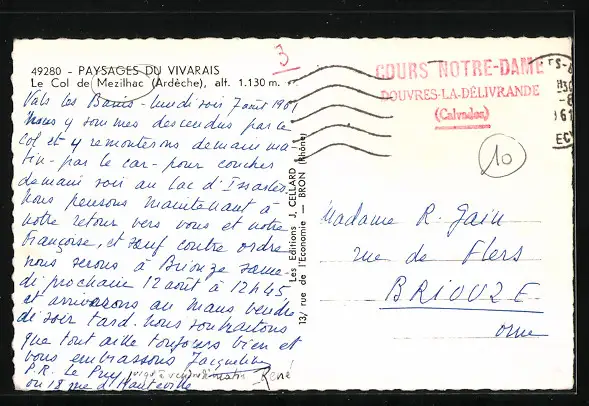 49280 - PAYSAGES DU VIVARAIS
Le Col de Mezilhac (Ardèche), alt. 1.130 m.
Vals les Bains - lundi soir 7 août 1961
Nous y sommes descendus par ce
col et y remonterons demain ma-
tin - par le car - pour coucher
demain soir au lac d'Issarlès.
Nous pensons maintenant à
notre retour vers vous et notre
Françoise, et sauf contre ordre
nous serons à Briouze same-
di prochain 12 août à 12h45
et arriverons au Mans vendre
di soir tard. Nous souhaitons
que tout aille toujours bien et
vous embrassons Jacqueline
P.R. Le Puy
René
ou 18 rue d'Hauteville
Les Editions J. CELLARD
13, rue de l'Economie — BRON (Rhône)
3
COURS NOTRE-DAME
DOUVRES-LA-DÉLIVRANDE
(Calvados)
10
Madame R. Gain
rue de Flers
BRIOUZE
Orne